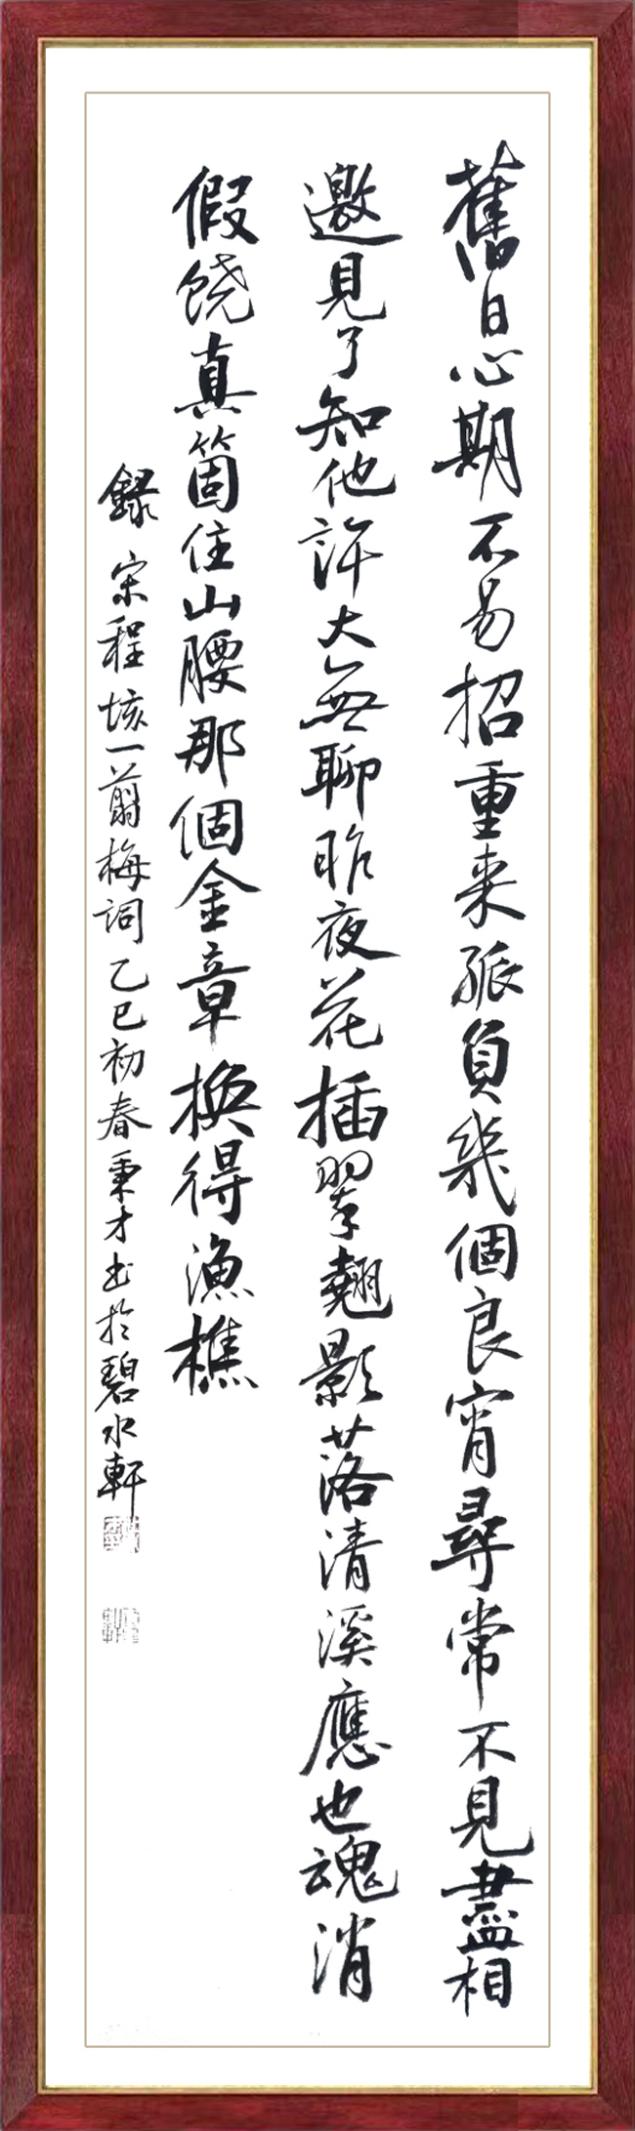 舊日心期不易招重来孤負幾個良宵尋常不見盡相
邀見了知他許大無聊昨夜花插翠翹影落清溪應也魂消
假饒真箇住山腰那個金章換得漁樵
録宋程垓一翦梅詞乙巳初春秉才书於碧水軒